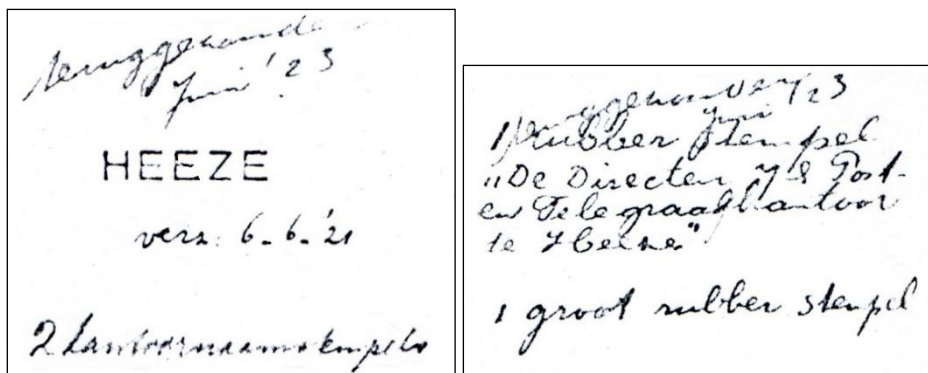 teruggezonden
juni '23
HEEZE
verz. 6-6-'21
2 kantoornaamstempels
teruggezonden
juni '23
1 rubber stempel
„De Directeur v/h Post-
en Telegraafkantoor
te Heeze"
1 groot rubber stempel